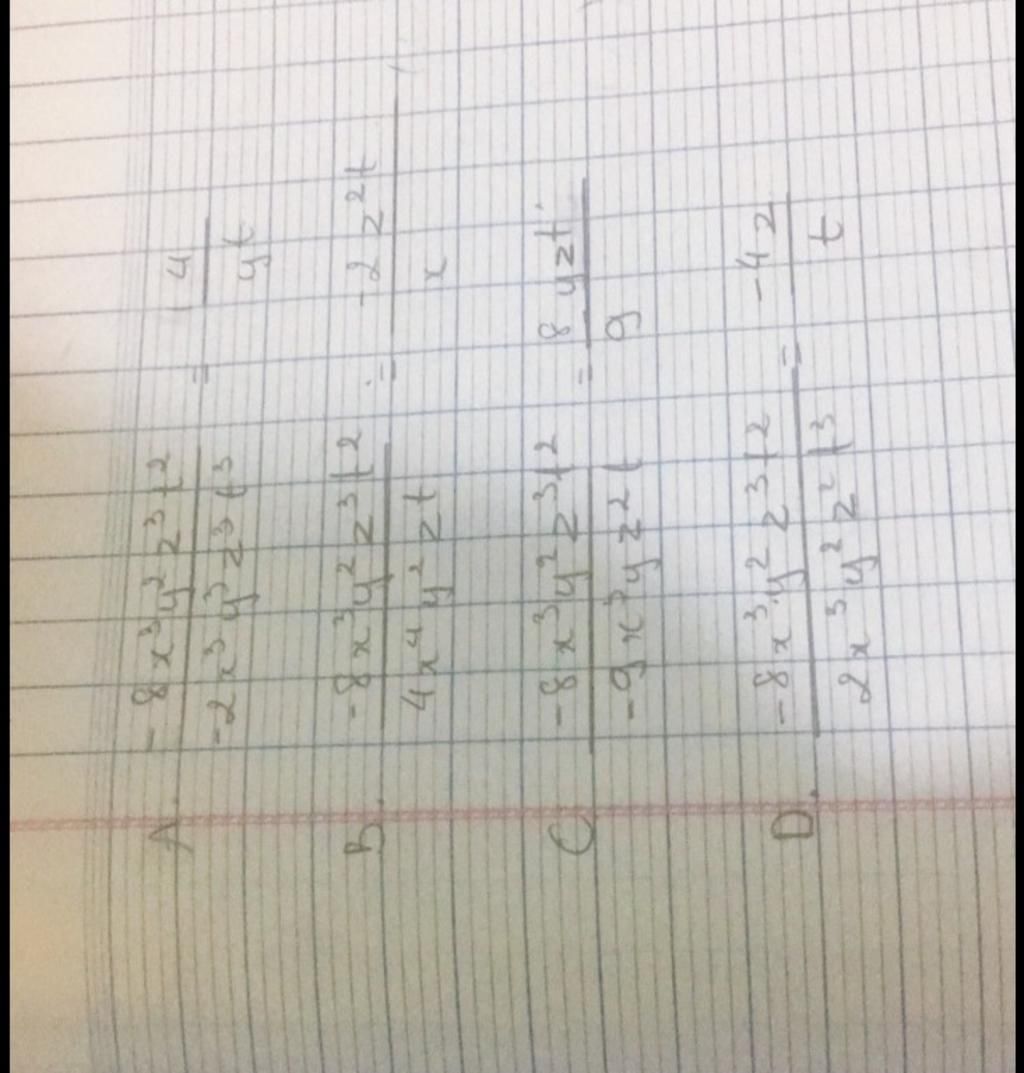 A. -8x³y²z³t² / -2x³y³z³t³ = 4 / yt
B. -8x³y²z³t² / 4x⁴y²zt = -2z²t / x
C -8x³y²z³t² / -9x³yz²t = 8yzt / 9
D. -8x³y²z³t² / 2x³y²z²t³ = -4z / t